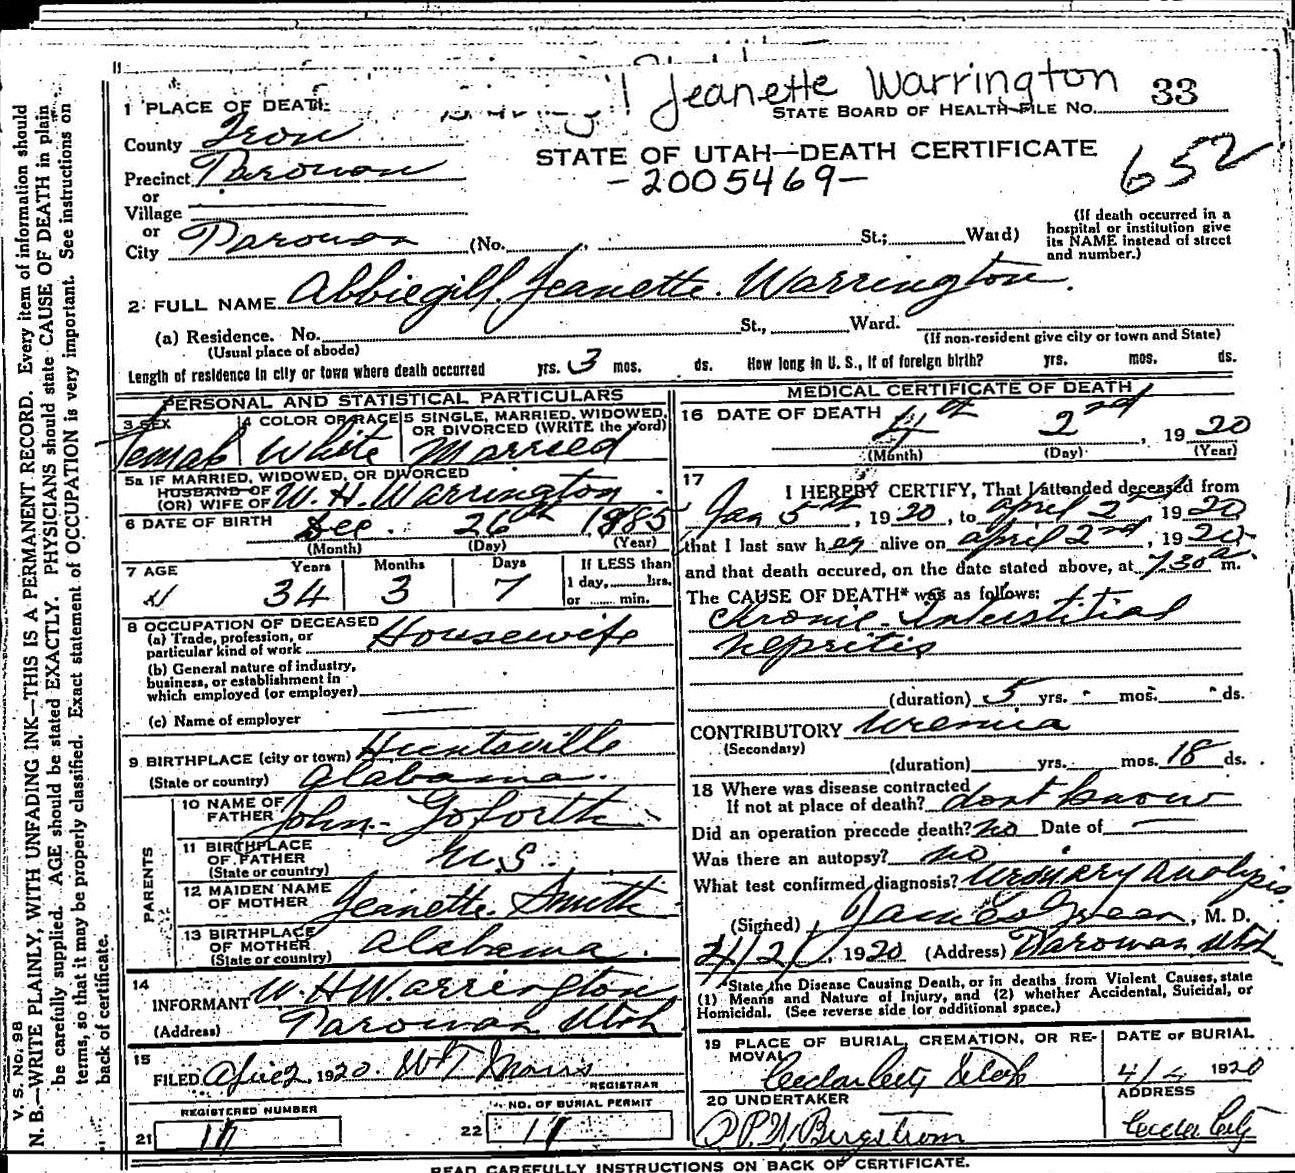 Jeanette Warrington
33
STATE BOARD OF HEALTH—FILE NO.
STATE OF UTAH—DEATH CERTIFICATE
-2005469-
652
1 PLACE OF DEATH
County Iron
Precinct Parowan
or
Village
or
City Parowan (No. St.; Ward)
(If death occurred in a hospital or institution give its NAME instead of street and number.)
2. FULL NAME Abbiegill Jeanette Warrington.
(a) Residence. No. St., Ward.
(Usual place of abode) (If non-resident give city or town and State)
Length of residence in city or town where death occurred yrs. 3 mos. ds. How long in U. S., if of foreign birth? yrs. mos. ds.
PERSONAL AND STATISTICAL PARTICULARS
3 SEX 4 COLOR OR RACE 5 SINGLE, MARRIED, WIDOWED, OR DIVORCED (WRITE the word)
Female White Married
5a IF MARRIED, WIDOWED, OR DIVORCED
HUSBAND OF
(OR) WIFE OF W. H. Warrington
6 DATE OF BIRTH Dec. 26th 1885
(Month) (Day) (Year)
7 AGE Years Months Days If LESS than
34 3 7 1 day, hrs.
or min.
8 OCCUPATION OF DECEASED
(a) Trade, profession, or
particular kind of work Housewife
(b) General nature of industry,
business, or establishment in
which employed (or employer)
(c) Name of employer
9 BIRTHPLACE (city or town) Huntsville
(State or country) Alabama.
PARENTS
10 NAME OF
FATHER John Goforth
11 BIRTHPLACE
OF FATHER U.S.
(State or country)
12 MAIDEN NAME
OF MOTHER Jeanette Smith
13 BIRTHPLACE
OF MOTHER Alabama.
(State or country)
14
INFORMANT W. H Warrington
(Address) Parowan Utah
15
FILED 1920 Wm T Morris
REGISTRAR
REGISTERED NUMBER NO. OF BURIAL PERMIT
21 11 22 11
MEDICAL CERTIFICATE OF DEATH
16 DATE OF DEATH 4th 2nd, 1920
(Month) (Day) (Year)
17
I HEREBY CERTIFY, That I attended deceased from
Jan 5th, 1920, to April 2nd, 1920
that I last saw her alive on April 2nd, 1920
and that death occured, on the date stated above, at 730 a m.
The CAUSE OF DEATH* was as follows:
Chronic Interstitial
Nepritis
(duration) 5 yrs. mos. ds.
CONTRIBUTORY Uremia
(Secondary)
(duration) yrs. mos. 18 ds.
18 Where was disease contracted
If not at place of death? dont know
Did an operation precede death? No Date of —
Was there an autopsy? No
What test confirmed diagnosis? Uronary Analysis
(Signed) James Green, M. D.
4/2/, 1920 (Address) Parowan Utah
*State the Disease Causing Death, or in deaths from Violent Causes, state
(1) Means and Nature of Injury, and (2) whether Accidental, Suicidal, or
Homicidal. (See reverse side for additional space.)
19 PLACE OF BURIAL, CREMATION, OR RE-
MOVAL DATE OF BURIAL
Cedar City Utah 4/4 1920
20 UNDERTAKER ADDRESS
Bergstrom Cedar City
READ CAREFULLY INSTRUCTIONS ON BACK OF CERTIFICATE.
V. S. NO. 98
N. B.—WRITE PLAINLY, WITH UNFADING INK—THIS IS A PERMANENT RECORD. Every item of information should
be carefully supplied. AGE should be stated EXACTLY. PHYSICIANS should state CAUSE OF DEATH in plain
terms, so that it may be properly classified. Exact statement of OCCUPATION is very important. See instructions on
back of certificate.